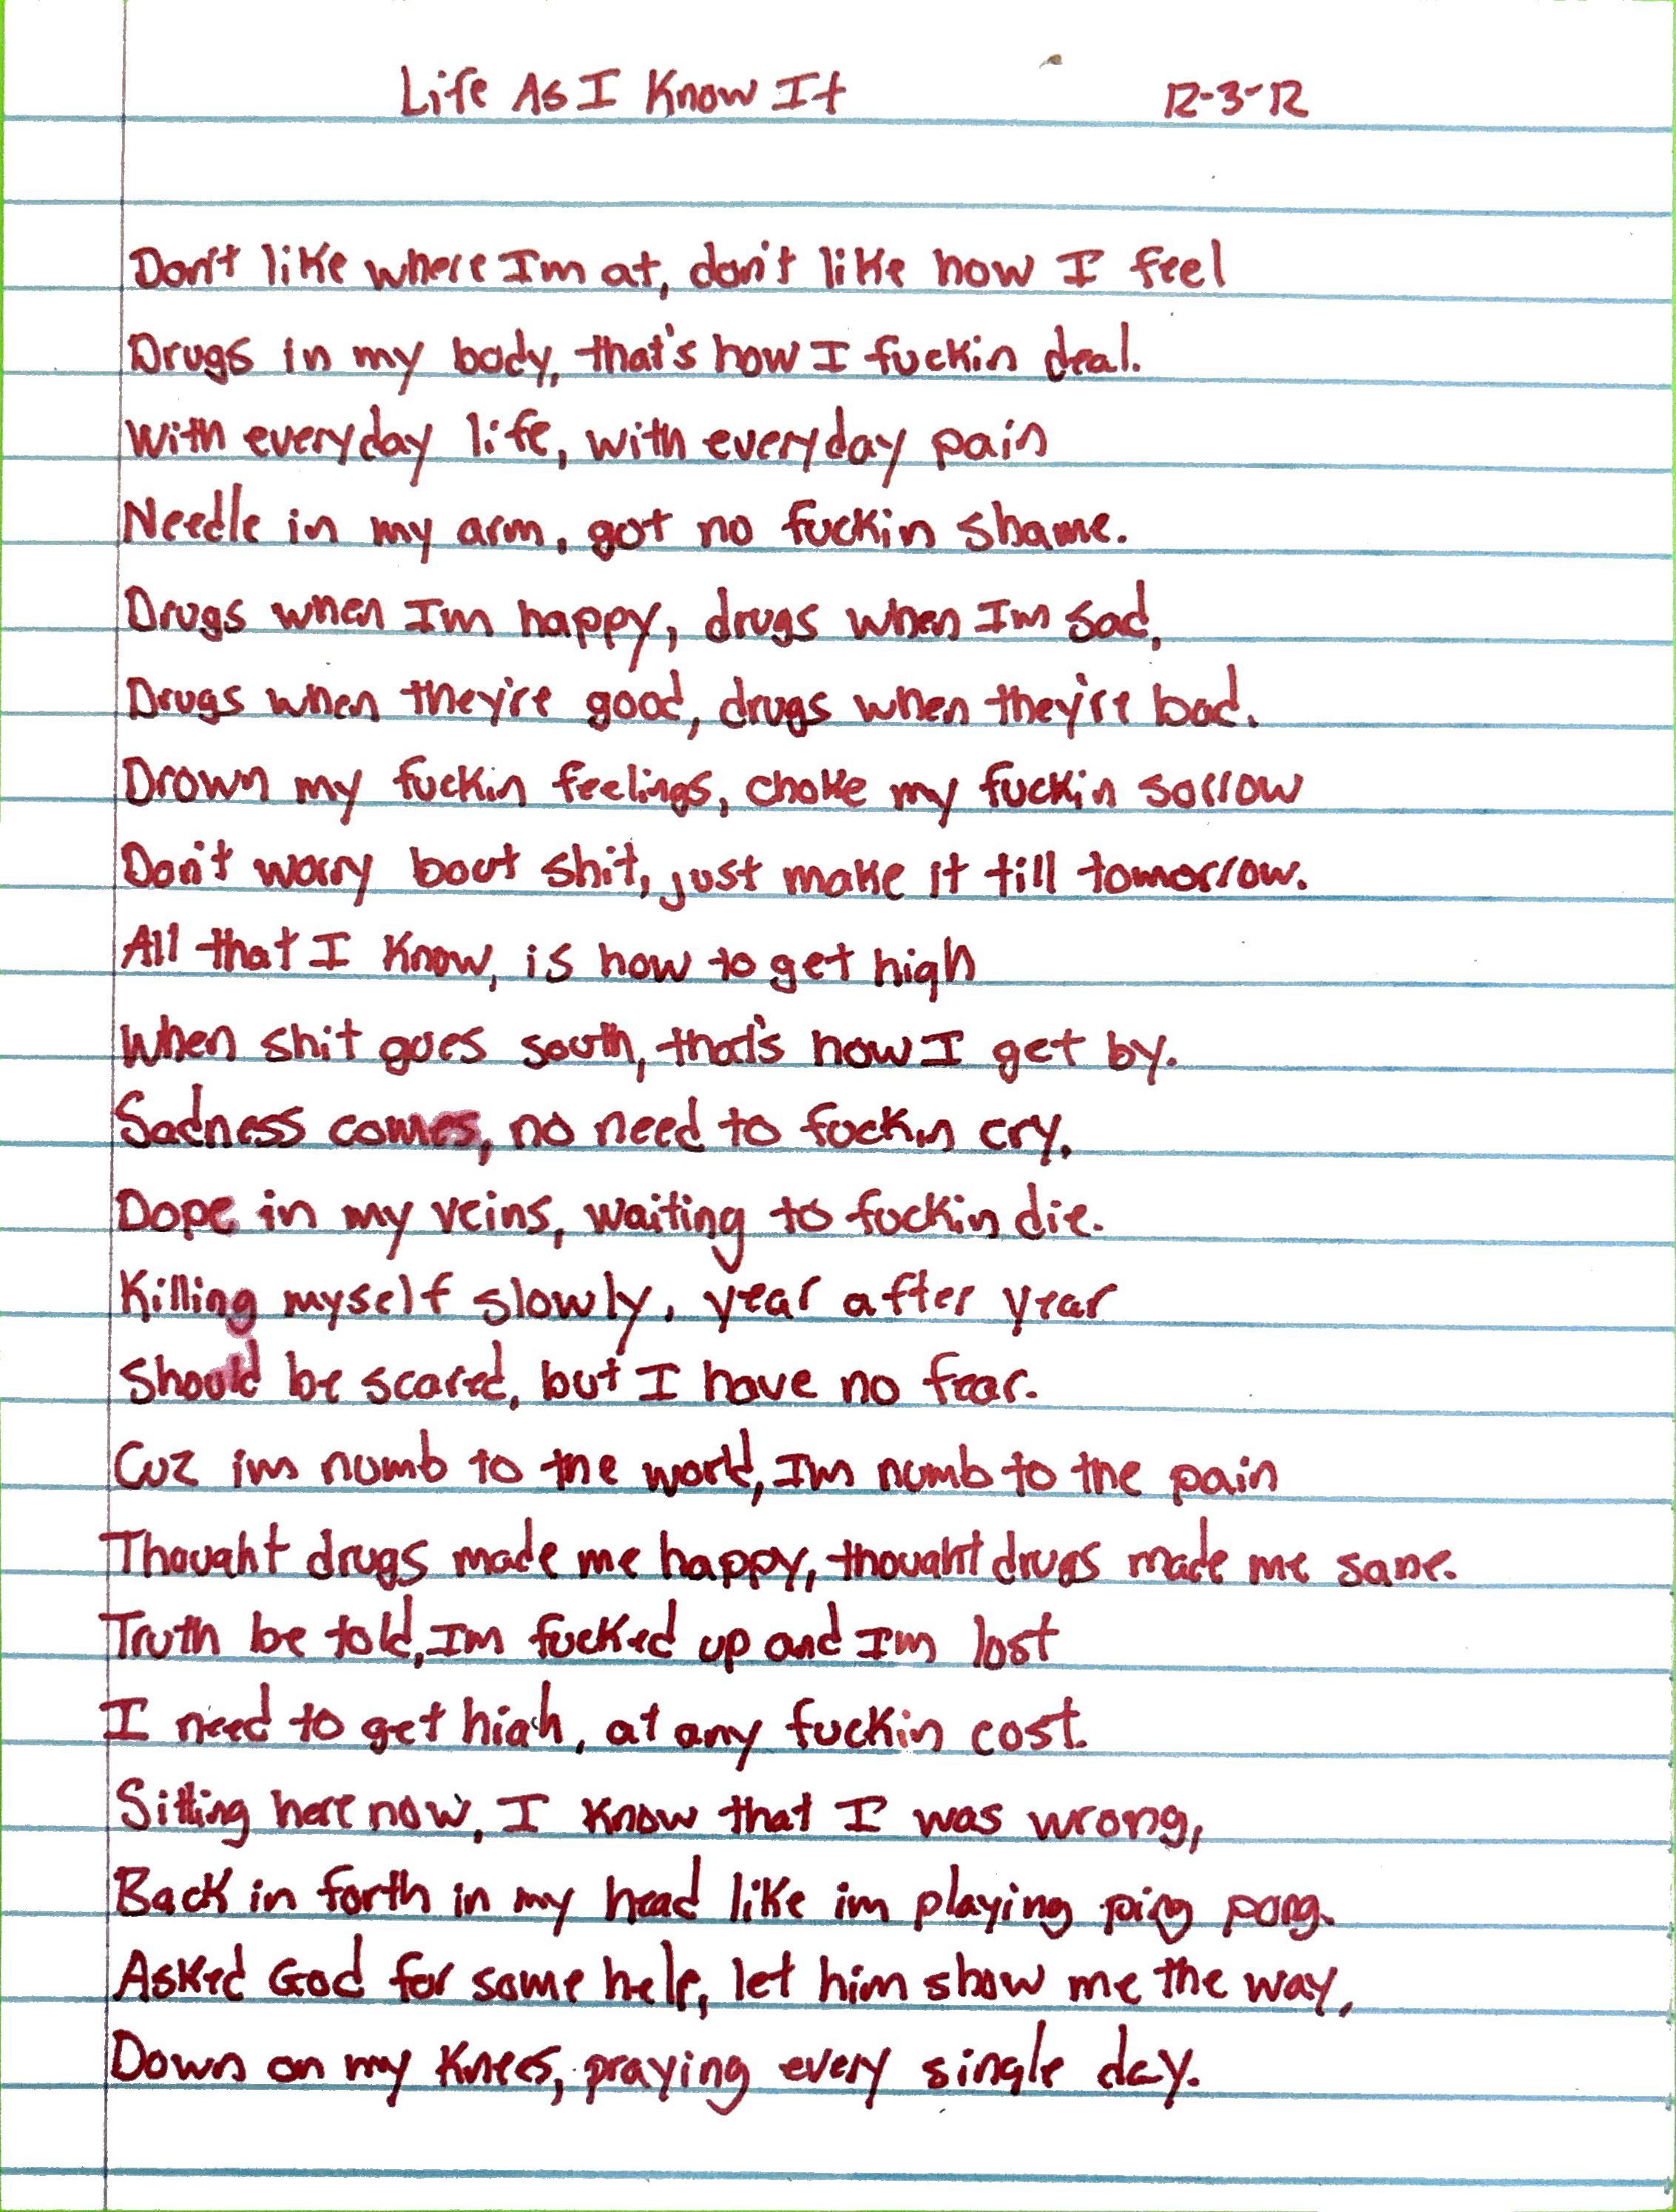 Life As I Know It 12-3-12
Don't like where I'm at, don't like how I feel
Drugs in my body, that's how I fuckin deal.
With everyday life, with everyday pain
Needle in my arm, got no fuckin shame.
Drugs when I'm happy, drugs when I'm sad,
Drugs when they're good, drugs when they're bad.
Drown my fuckin feelings, choke my fuckin sorrow
Don't worry bout shit, just make it till tomorrow.
All that I know, is how to get high
When shit goes south, that's how I get by.
Sadness comes, no need to fuckin cry,
Dope in my veins, waiting to fuckin die.
Killing myself slowly, year after year
Should be scared, but I have no fear.
Cuz im numb to the world, I'm numb to the pain
Thought drugs made me happy, thought drugs made me sane.
Truth be told, I'm fucked up and I'm lost
I need to get high, at any fuckin cost.
Sitting here now, I know that I was wrong,
Back in forth in my head like im playing ping pong.
Asked God for some help, let him show me the way,
Down on my knees, praying every single day.